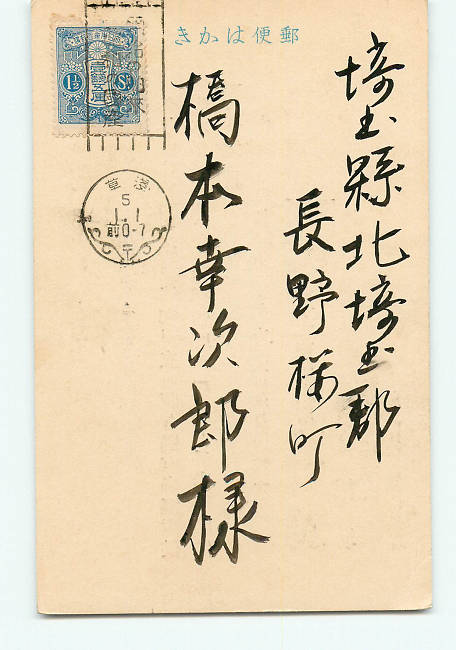 郵便はがき
埼玉縣北埼玉郡
長野桜町
橋本幸次郎様
1½ Sn
壹錢五厘
淺草
5
1.1
前0-7